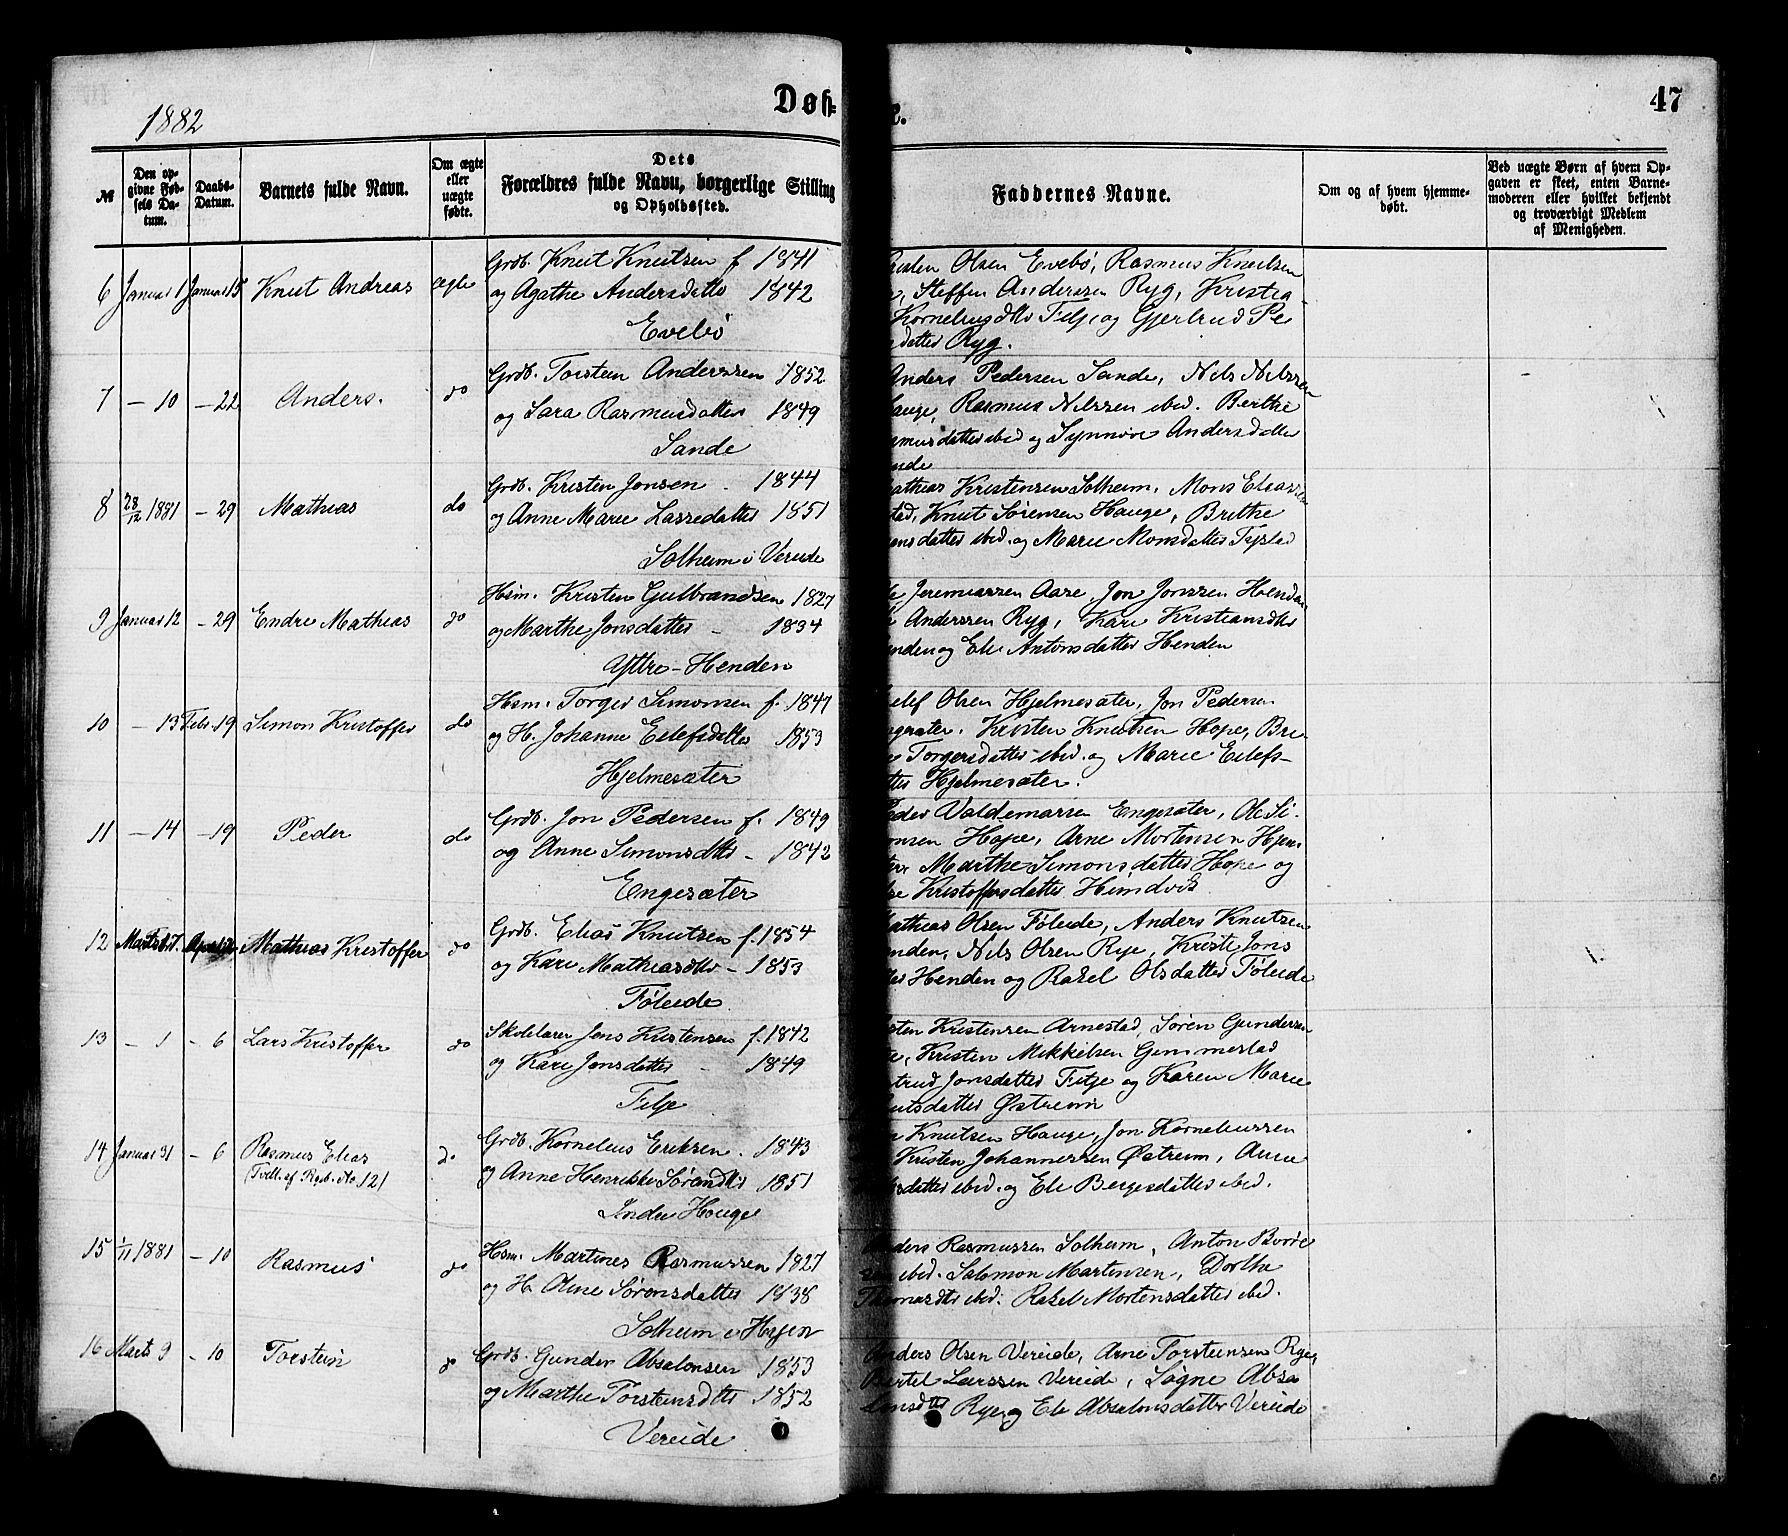 1882
Døb-
47
№
Den op-
givne Fød-
sels Da-
tum.
Daabs-
Datum.
Barnets fulde Navn.
Om ægte
eller
uægte
fødte.
Dets
Forældres fulde Navn, borgerlige Stilling
og Opholdssted.
Faddernes Navne.
Om og af hvem hjemme-
døbt.
Ved uægte Børn af hvem Op-
gaven er skeet, enten Barne-
moderen eller hvilket bekjendt
og troværdigt Medlem
af Menigheden.
6 Januar 1 Januar 15 Knut Andreas ægte
Grdb. Knut Knutsen f 1841
og Agathe Andersdatter 1842
Evebø
Olsen Evebø, Rasmus Knutsen
Steffen Anderssen Ryg, Kristia-
Kornelius dtr Fitje og Gjertrud Pe
datter Ryg.
7 — 10 — 22 Anders. do
Grdb. Torstein Anderssen 1852
og Sara Rasmusdatter 1849
Sande
Anders Pedersen Sande, Nils Nilssen
Hauge, Rasmus Nilssen ibid. Berthe
smusdatter ibid og Synnøve Andersdatter
nde
8 28/12 1881 — 29 Mathias do
Grdb. Kristen Jonsen - 1844
og Anne Marie Lassedatter 1851
Solheim i Vereide
athias Kristensen Solheim, Mons Eliassen
stad, Knut Sørensen Hauge, Brithe
ensdatter ibid. og Marie Monsdatter Tystad
9 Januar 12 — 29 Endre Mathias do
Hsm. Kristen Gulbrandsen 1827
og Marthe Jonsdatter - 1834
Yttre-Henden
le Jeremiassen Aare, Jon Jonssen Henden
Anderssen Ryg, Kari Kristiansdtr
enden og Eli Antonsdatter Henden
10 — 13 Febr. 19 Simon Kristoffer do
Hsm. Torger Simonsen f. 1847
og H. Johanne Eilefsdatter 1853
Hjelmesæter
ilef Olsen Hjelmesæter, Jon Pedersen
ngesæter. Kristen Knutsen Hope, Bri
Torgersdatter ibid. og Marie Eilefs-
tter Hjelmesæter.
11 — 14 — 19 Peder do
Grdb. Jon Pedersen f. 1849
og Anne Simonsdtr - 1842
Engesæter
Peder Valdemarsen Engesæter, Ole Si-
monsen Hope, Arne Mortensen Hjem
Marthe Simonsdatter Hope og
Kristoffersdatter Hindvik
12 Mathias Kristoffer do
Grdb. Elias Knutsen f. 1854
og Kari Mathiasdtr - 1853
Føleide
Mathias Olsen Føleide, Anders Knutsen
enden, Nils Olsen Rye, Kristi Jons
tter Henden og Rakel Olsdatter Føleide
13 — 1 — 6 Lars Kristoffer do
Skolelærer Jens Kristensen f. 1842
og Kari Jonsdatter - 1849
Fitje
sten Kristensen Arnestad, Søren Gundersen
Kristen Mikkelsen Gemmestad
trud Jonsdatter Fitje og Karen Marie
utsdatter Østreim
14 Januar 31 — 6 Rasmus Elias do
(Tvill. af Regb. No 12)
Grdb. Kornelius Eriksen. 1843
og Anne Henrikke Sørensdtr 1851
Indre Hauge
Knutsen Hauge, Jon Korneliussen
Kristen Johannessen Østreim, Anne
datter ibid. og Eli Børgesdatter ibid.
15 1/11 1881 — 10 Rasmus do
Hsm. Martines Rasmussen 1827
og H. Oline Sørensdatter 1838
Solheim i Hagen
Anders Rasmussen Solheim, Anton Børre
sen ibid. Salomon Martensen, Dorthe
Thomasdtr ibid. Rakel Mortensdatter ibid.
16 Marts 9 — 10 Torstein do
Grdb. Gunder Absalonsen 1853
og Marthe Torsteinsdtr 1852
Vereide
Anders Olsen Vereide, Arne Torsteinsen Rye,
Bertel Larssen Vereide, Søgne Absa
lonsdtr Rye og Eli Absalonsdatter Vereide